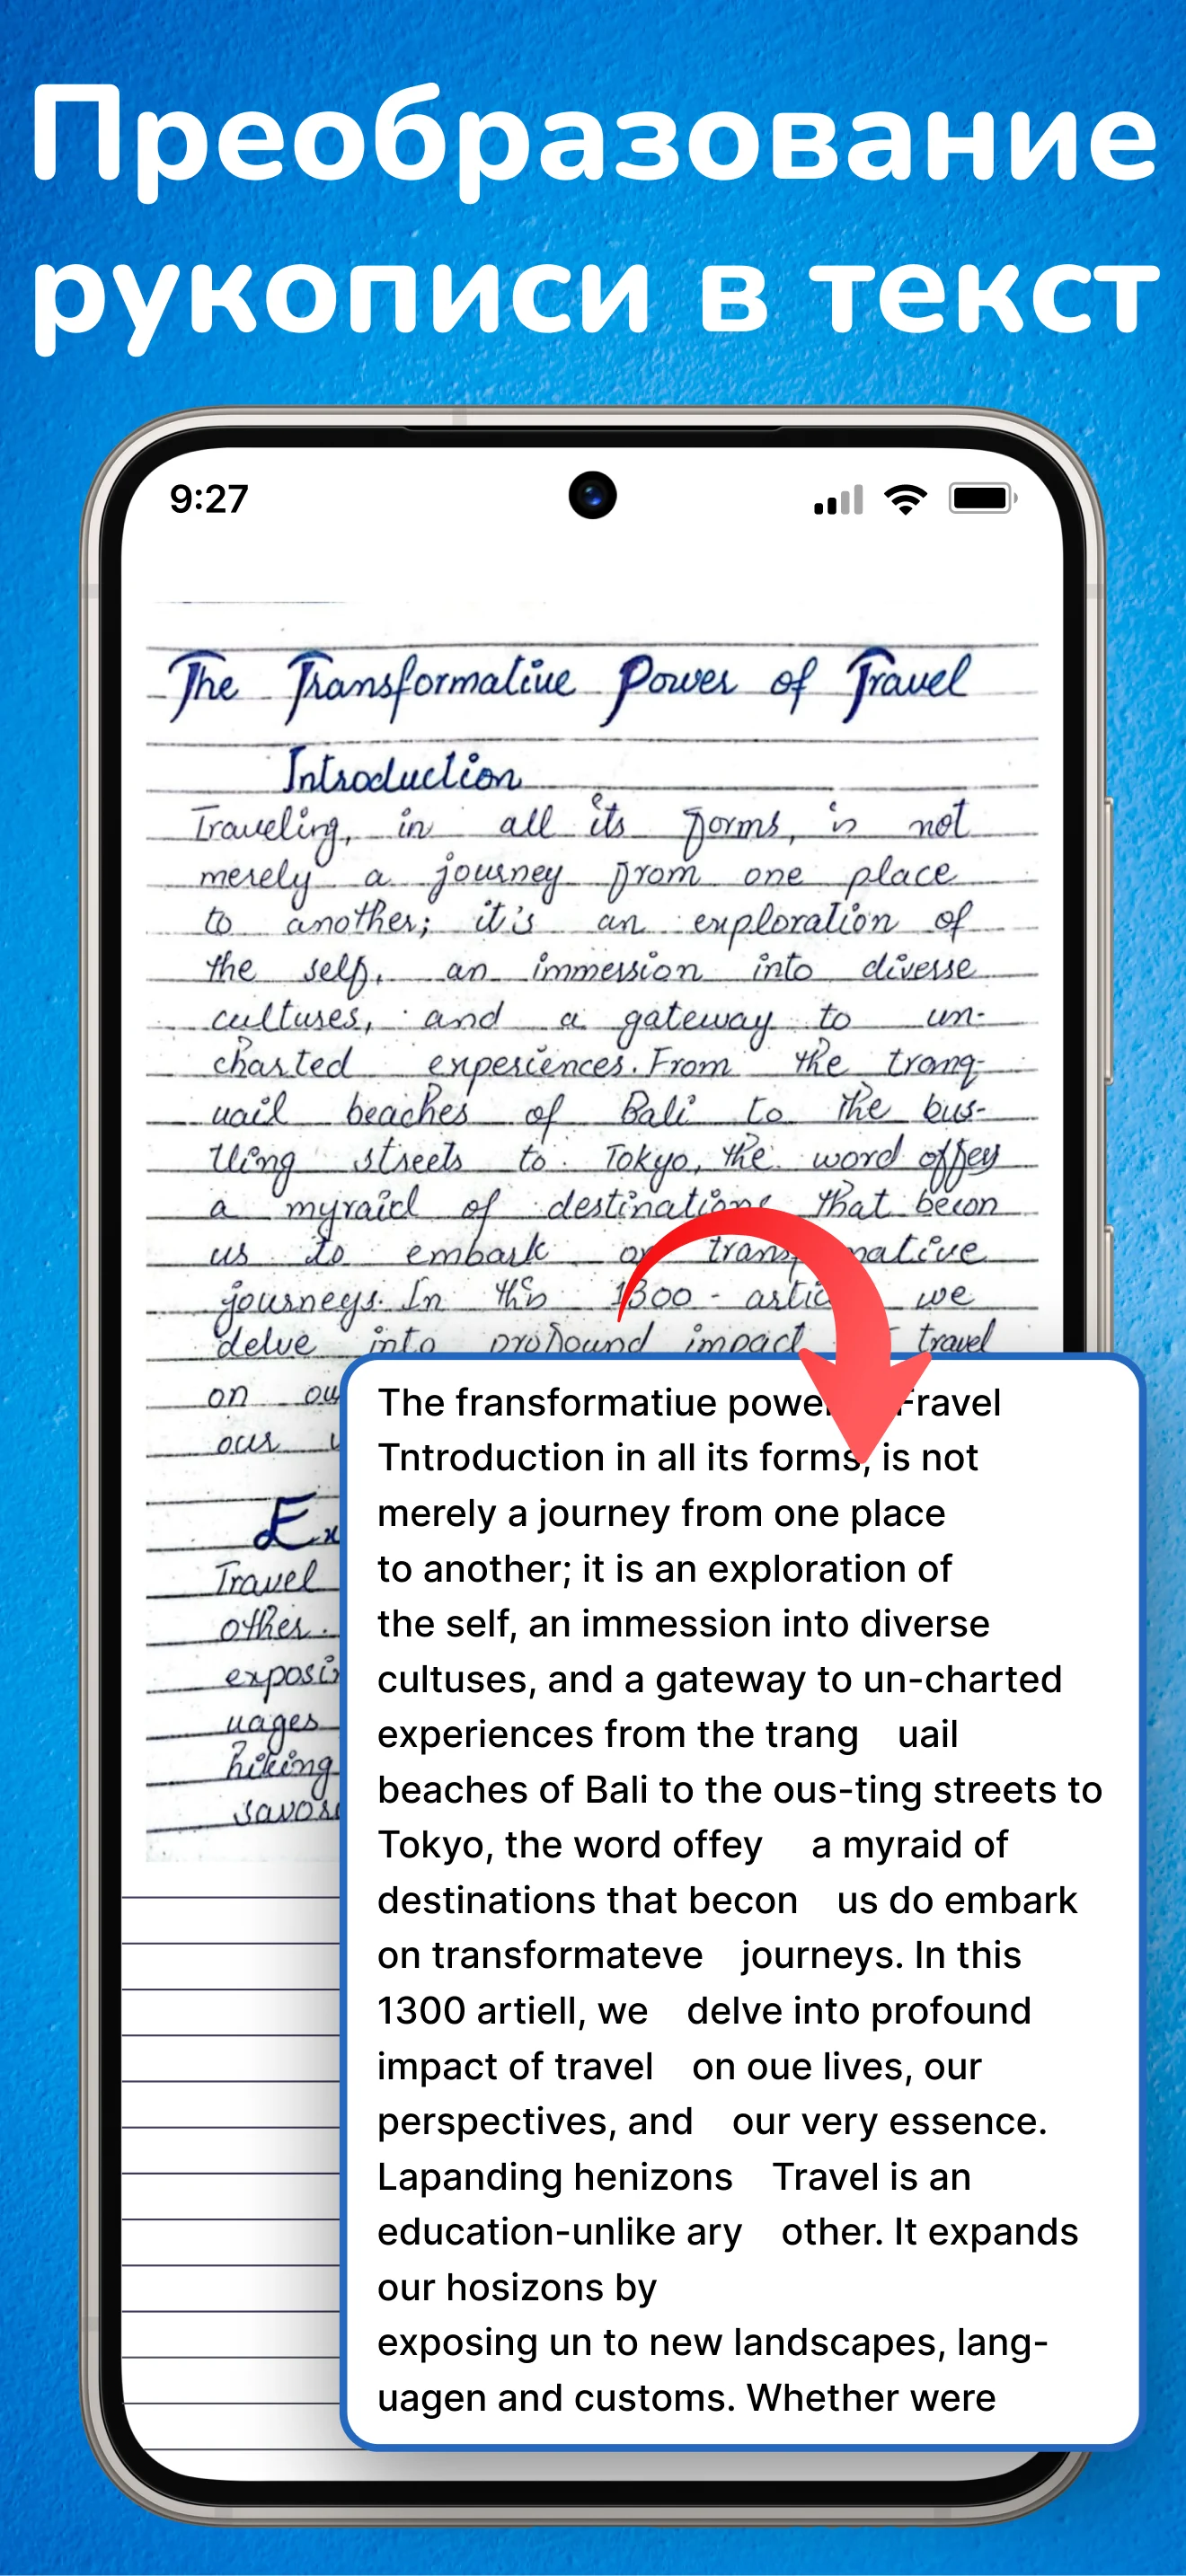 Преобразование
рукописи в текст
9:27
The Transformative Power of Travel
Introduction
Traveling, in all its forms, is not
merely a journey from one place
to another; it's an exploration of
the self, an immession into diverse
cultures, and a gateway to un-
charted experiences. From the tranq-
uail beaches of Bali to the bus-
tling streets to Tokyo, the word offey
a myraid of destinations that becon
us to embark on
journeys. In this 1300 - we
delve into profound impact travel
on
our
Travel
other.
uages
hiking
The fransformatiue Fravel
Tntroduction in all its forms, is not
merely a journey from one place
to another; it is an exploration of
the self, an immession into diverse
cultuses, and a gateway to un-charted
experiences from the trang uail
beaches of Bali to the ous-ting streets to
Tokyo, the word offey a myraid of
destinations that becon us do embark
on transformateve journeys. In this
1300 artiell, we delve into profound
impact of travel on oue lives, our
perspectives, and our very essence.
Lapanding henizons Travel is an
education-unlike ary other. It expands
our hosizons by
exposing un to new landscapes, lang-
uagen and customs. Whether were